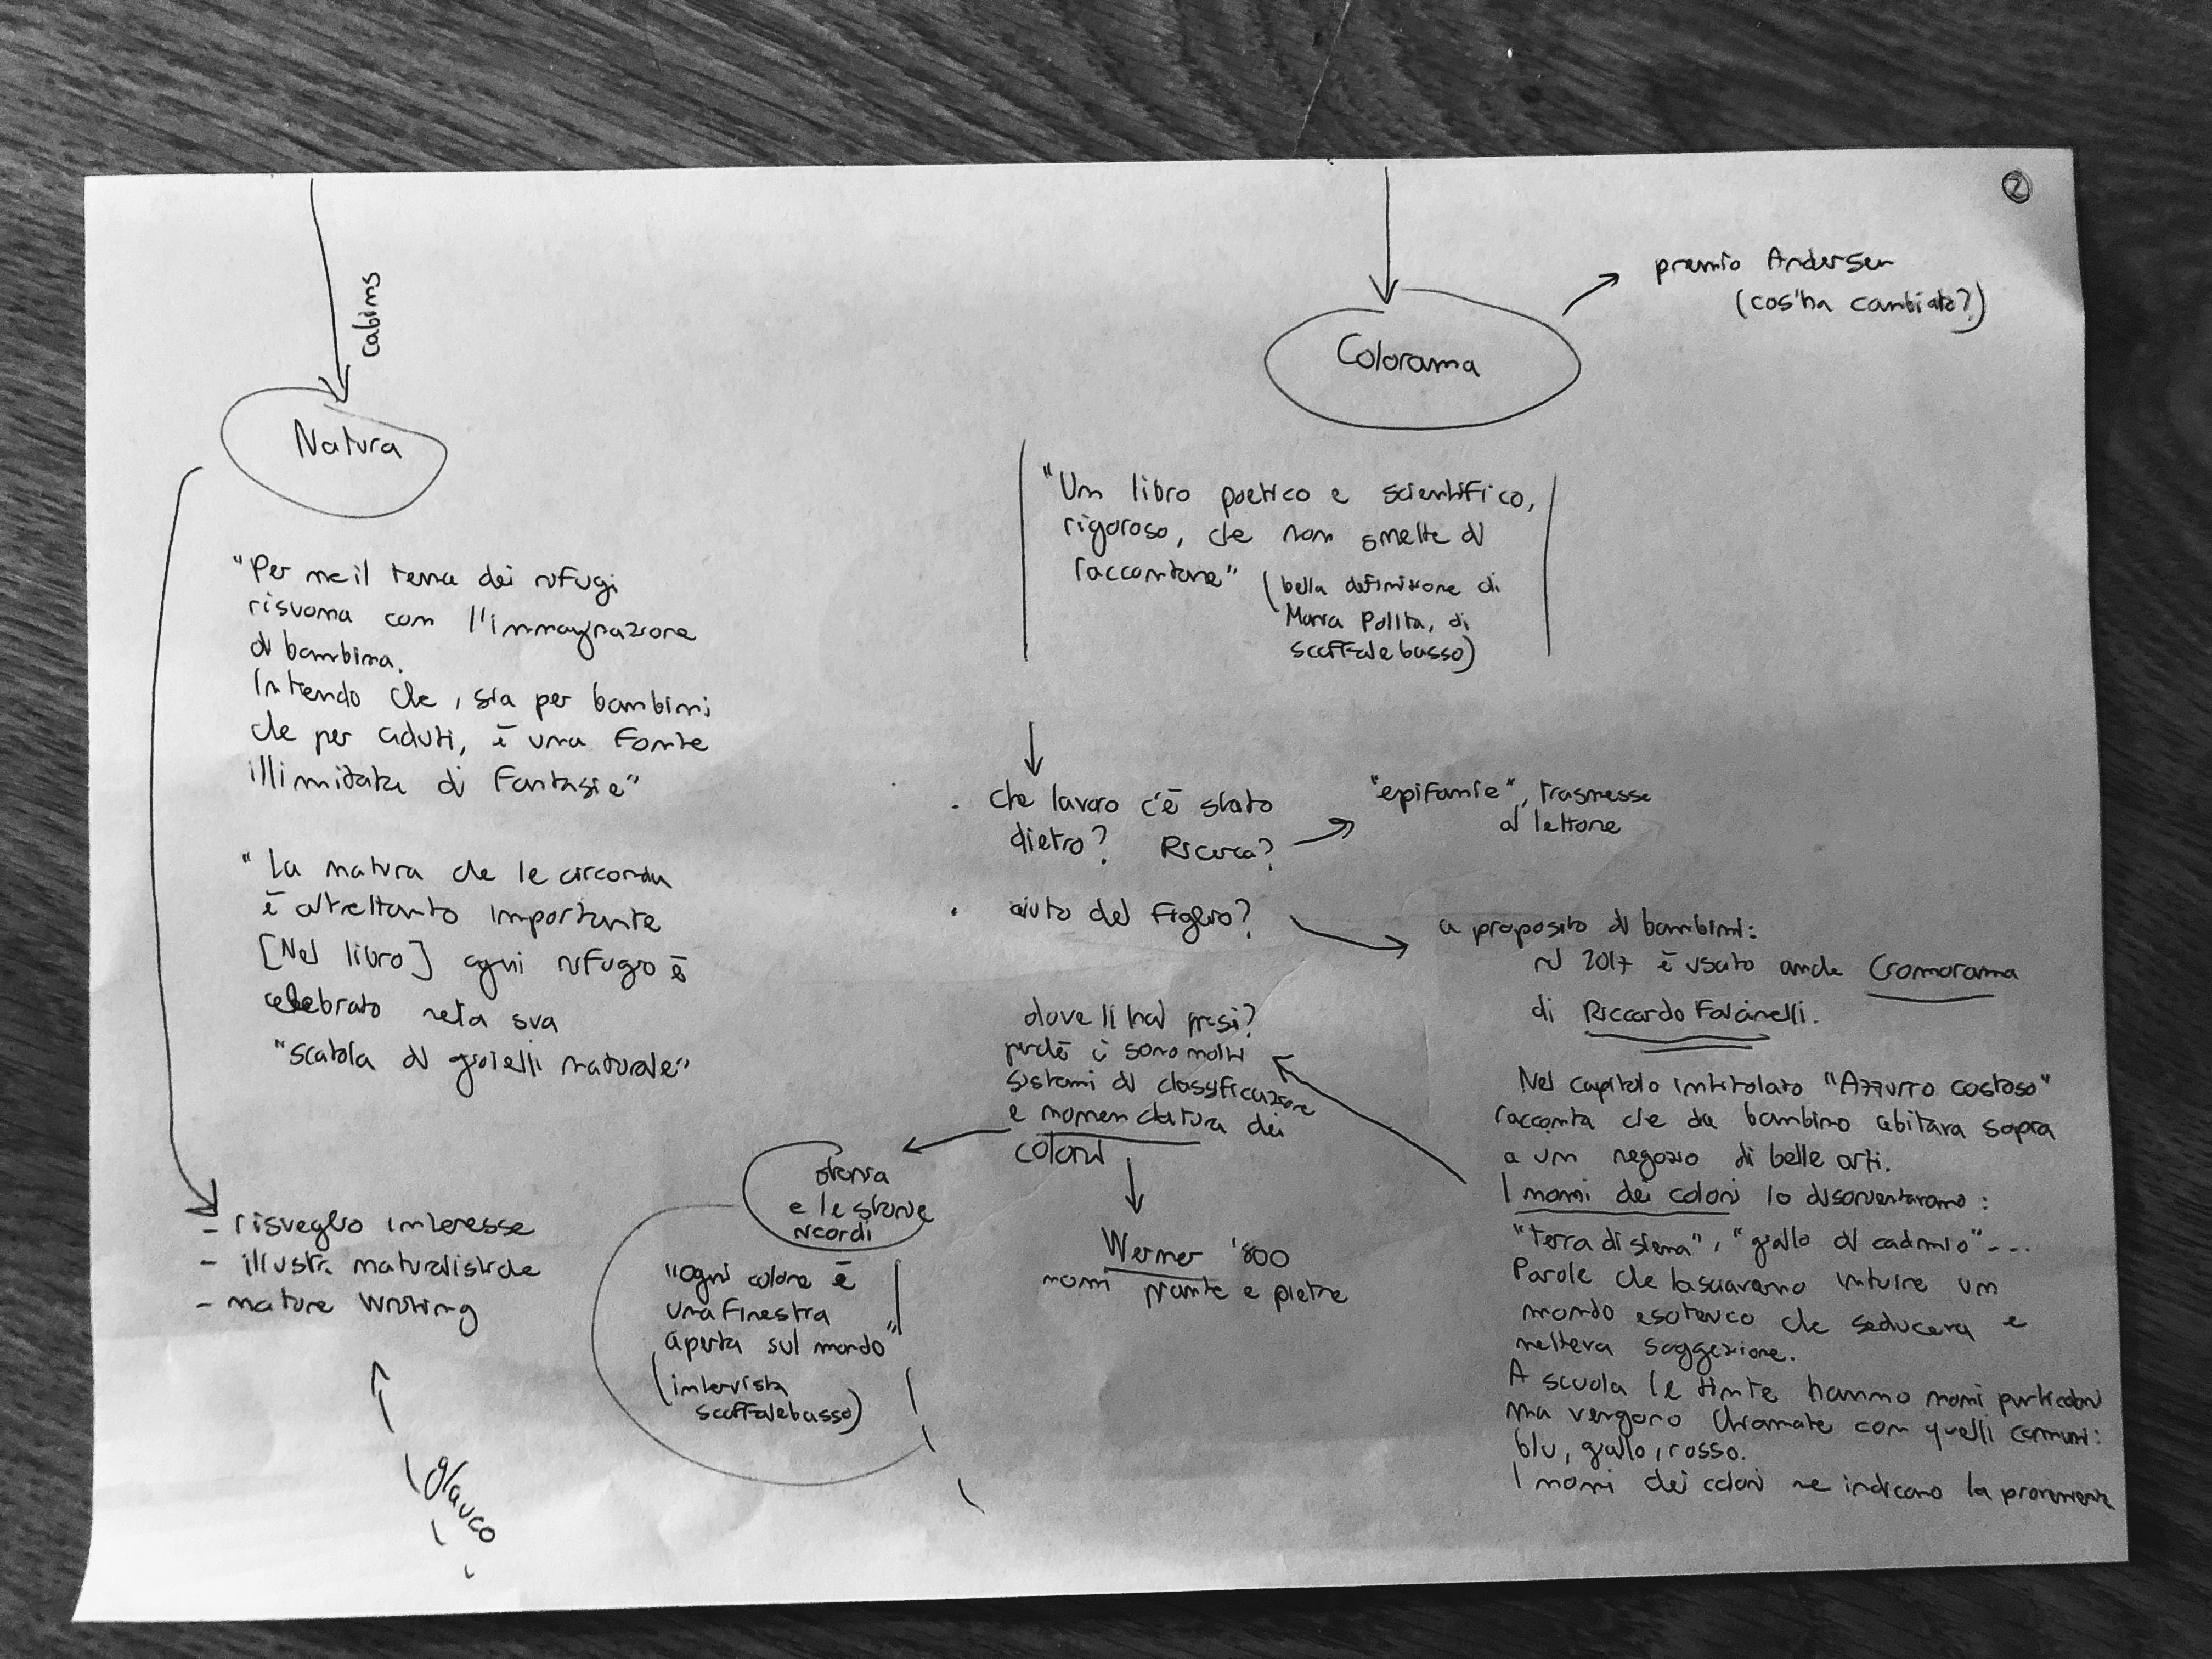 2
cabins
Natura
"Per me il tema dei rifugi
risuona con l'immaginazione
di bambina.
Intendo che, sia per bambini
che per aduti, è una fonte
illimitata di fantasie"
"La natura che le circonda
è altrettanto importante
[Nel libro] ogni rifugio è
celebrato nella sua
"scatola di gioielli naturale"
- risveglio interesse
- illustr. naturalistiche
- nature writing
glauco
Colorama
premio Andersen
(cos'ha cambiato?)
"Un libro poetico e scientifico,
rigoroso, che non smette di
raccontare" (bella definizione di
di
scaffalebasso)
. che lavoro c'è stato
dietro? Ricerca?
"epifanie", trasmesse
al lettore
. aiuto del figlio?
a proposito di bambini:
nel 2017 è uscito anche Cromorama
di Riccardo Falcinelli.
Nel capitolo intitolato "Azzurro costoso"
racconta che da bambino abitava sopra
a un negozio di belle arti.
I nomi dei colori lo disorientavano:
"terra di siena", "giallo di cadmio"...
Parole che lasciavano intuire un
mondo esoterico che seduceva e
metteva soggezione.
A scuola le tinte hanno nomi particolari
ma vengono chiamate con quelli comuni:
blu, giallo, rosso.
I nomi dei colori ne indicano la provenienza
dove li hai presi?
perché ci sono molti
sistemi di classificazione
e nomenclatura dei
colori
storia
e le storie
ricordi
"ogni colore è
una finestra
aperta sul mondo"
(intervista
scaffalebasso)
Werner '800
nomi piante e pietre